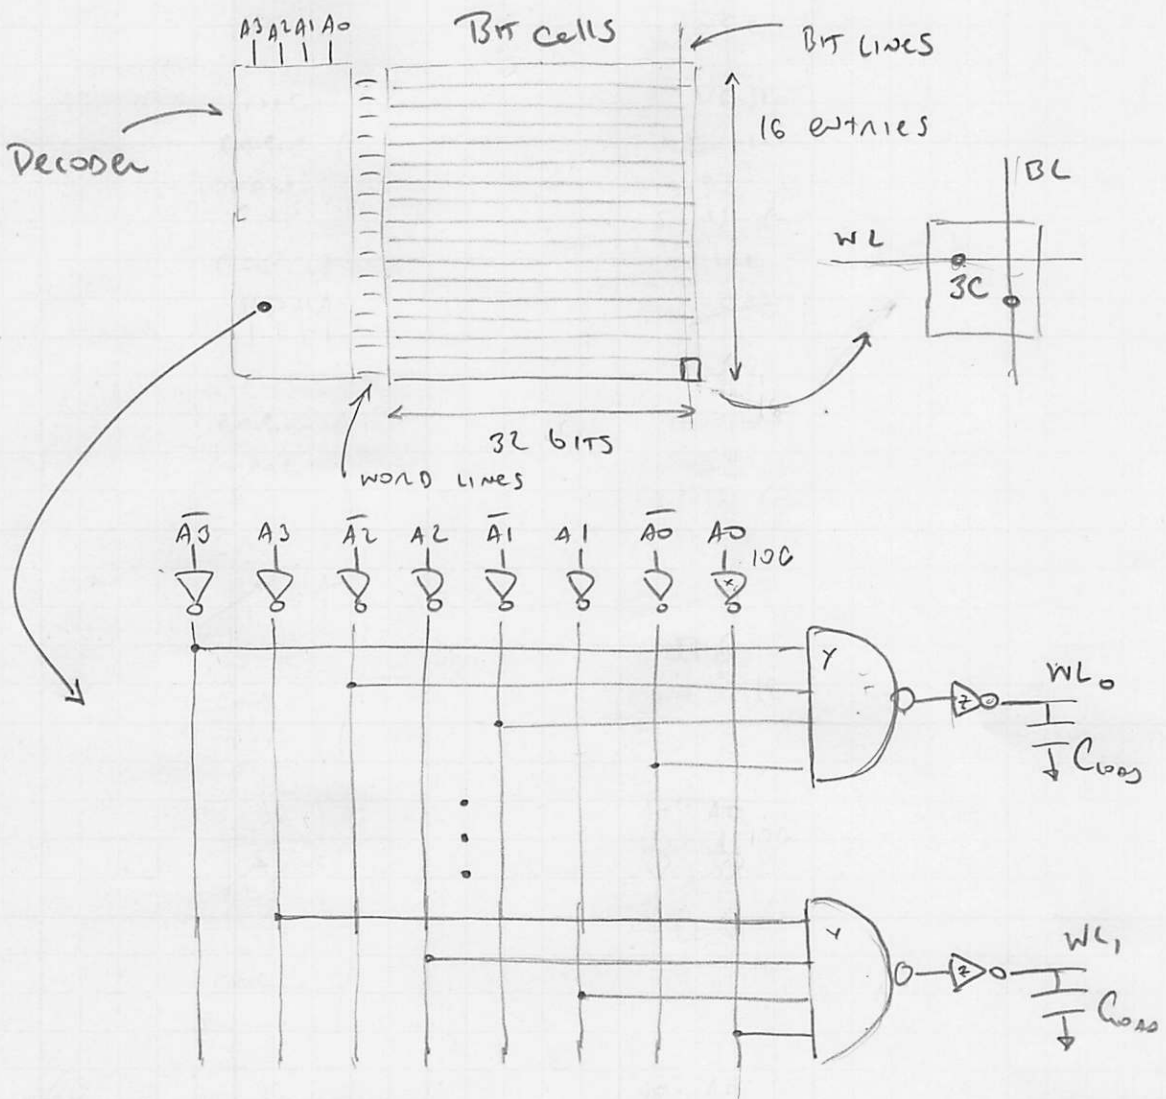 A3 A2 A1 A0
Bit cells
BIT LINES
Decoder
16 entries
BL
WL
3C
32 bits
WORD LINES
A̅3̅ A3 A̅2̅ A2 A̅1̅ A1 A̅0̅ A0
x
10C
Y
z
WL0
CLOAD
Y
z
WL1
CLOAD